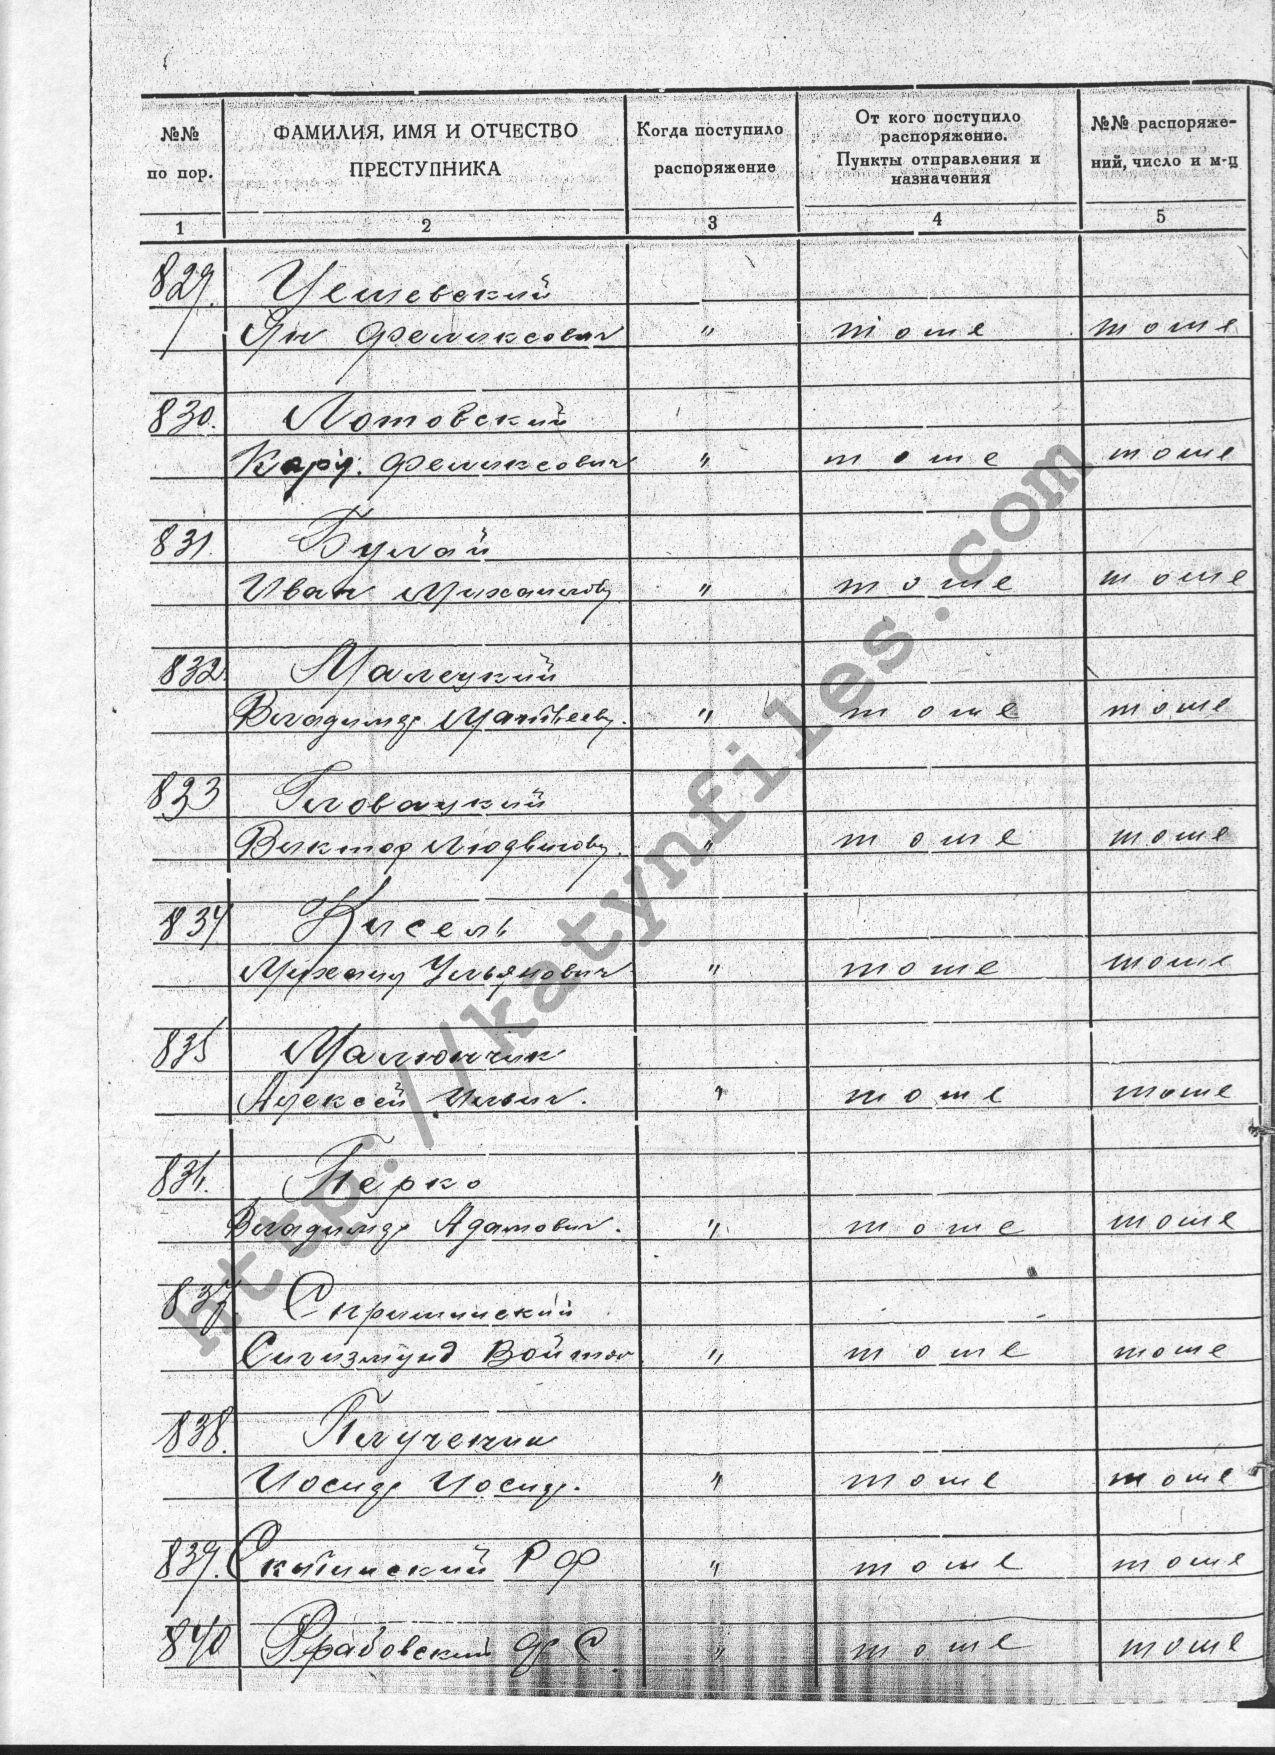 №№ по пор. ФАМИЛИЯ, ИМЯ И ОТЧЕСТВО ПРЕСТУПНИКА Когда поступило распоряжение От кого поступило распоряжение. Пункты отправления и назначения №№ распоряже-ний, число и м-ц
1 2 3 4 5
829. Цешевский
Ян Феликсович " тоже тоже
830. Лотовский
Карл. Феликсович " тоже тоже
831. Булай
Иван Михайлов " тоже тоже
832. Малецкий
Владимир Матвеев. " тоже тоже
833 Гловацкий
Виктор Людвигов. " тоже тоже
834 Кисель
Михаил Ульянович " тоже тоже
835 Малюнчик
Алексей Ильич. " тоже тоже
836. Перко
Владимир Адамович. " тоже тоже
837.
Сигизмунд Войтов " тоже тоже
838.
Иосиф Иосиф. " тоже тоже
839. Р Ф " тоже тоже
840 " тоже тоже
http://katynfiles.com